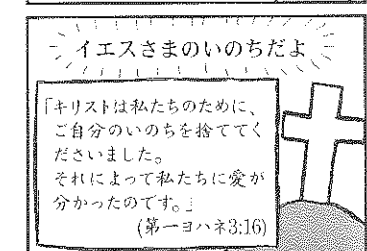 イエスさまのいのちだよ
「キリストは私たちのために、
ご自分のいのちを捨ててく
ださいました。
それによって私たちに愛が
分かったのです。」
(第一ヨハネ3:16)